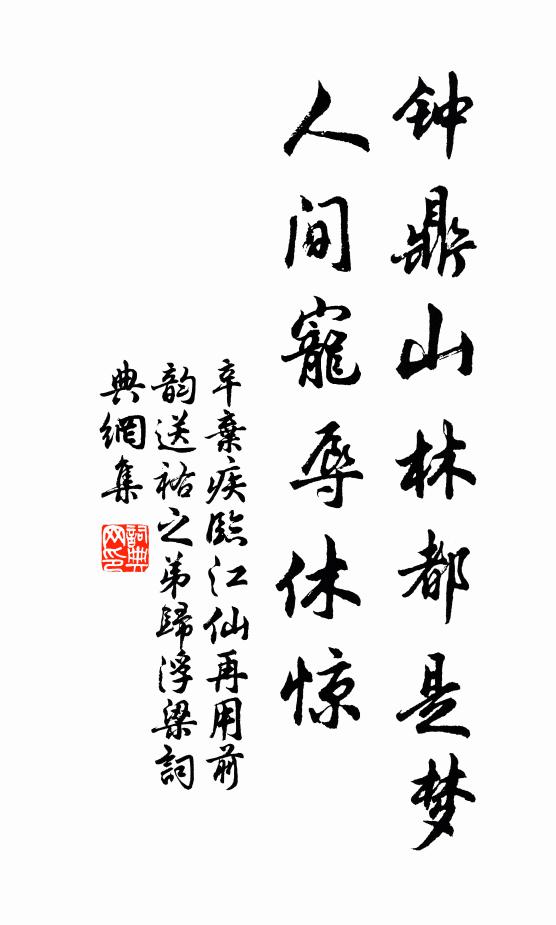 钟鼎山林都是梦
人间寵辱休惊
辛棄疾臨江仙再用前
韵送祐之弟歸浮梁詞
典網集
詞典网印